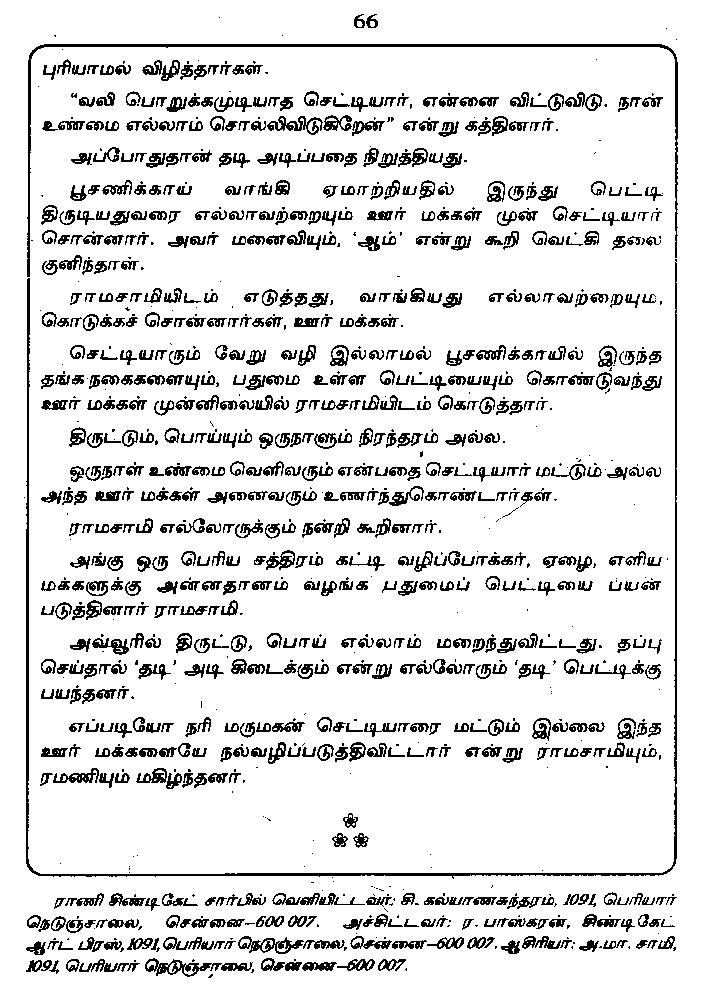 66
புரியாமல் விழித்தார்கள்.
“வலி பொறுக்கமுடியாத செட்டியார், என்னை விட்டுவிடு. நான்
உண்மை எல்லாம் சொல்லிவிடுகிறேன்” என்று கத்தினார்.
அப்போதுதான் தடி அடிப்பதை நிறுத்தியது.
பூசணிக்காய் வாங்கி ஏமாற்றியதில் இருந்து பெட்டி
திருடியதுவரை எல்லாவற்றையும் ஊர் மக்கள் முன் செட்டியார்
சொன்னார். அவர் மனைவியும், ‘ஆம்’ என்று கூறி வெட்கி தலை
குனிந்தாள்.
ராமசாமியிடம் எடுத்தது, வாங்கியது எல்லாவற்றையும,
கொடுக்கச் சொன்னார்கள், ஊர் மக்கள்.
செட்டியாரும் வேறு வழி இல்லாமல் பூசணிக்காயில் இருந்த
தங்க நகைகளையும், பதுமை உள்ள பெட்டியையும் கொண்டுவந்து
ஊர் மக்கள் முன்னிலையில் ராமசாமியிடம் கொடுத்தார்.
திருட்டும், பொய்யும் ஒருநாளும் நிரந்தரம் அல்ல.
ஒருநாள் உண்மை வெளிவரும் என்பதை செட்டியார் மட்டும் அல்ல
அந்த ஊர் மக்கள் அனைவரும் உணர்ந்துகொண்டார்கள்.
ராமசாமி எல்லோருக்கும் நன்றி கூறினார்.
அங்கு ஒரு பெரிய சத்திரம் கட்டி வழிப்போக்கர், ஏழை, எளிய
மக்களுக்கு அன்னதானம் வழங்க பதுமைப் பெட்டியை பயன்
படுத்தினார் ராமசாமி.
அவ்வூரில் திருட்டு, பொய் எல்லாம் மறைந்துவிட்டது. தப்பு
செய்தால் ‘தடி’ அடி கிடைக்கும் என்று எல்லோரும் ‘தடி’ பெட்டிக்கு
பயந்தனர்.
எப்படியோ நரி மருமகன் செட்டியாரை மட்டும் இல்லை இந்த
ஊர் மக்களையே நல்வழிப்படுத்திவிட்டார் என்று ராமசாமியும்,
ரமணியும் மகிழ்ந்தனர்.
ராணி சிண்டிகேட் சார்பில் வெளியிட்டவர்: சி. கல்யாணசுந்தரம், 1091, பெரியார்
நெடுஞ்சாலை, சென்னை–600 007. அச்சிட்டவர்: ர. பாஸ்கரன், சிண்டிகேட்
ஆர்ட் பிரஸ், 1091, பெரியார் நெடுஞ்சாலை, சென்னை–600 007. ஆசிரியர்: அ.மா. சாமி,
1091, பெரியார் நெடுஞ்சாலை, சென்னை–600 007.